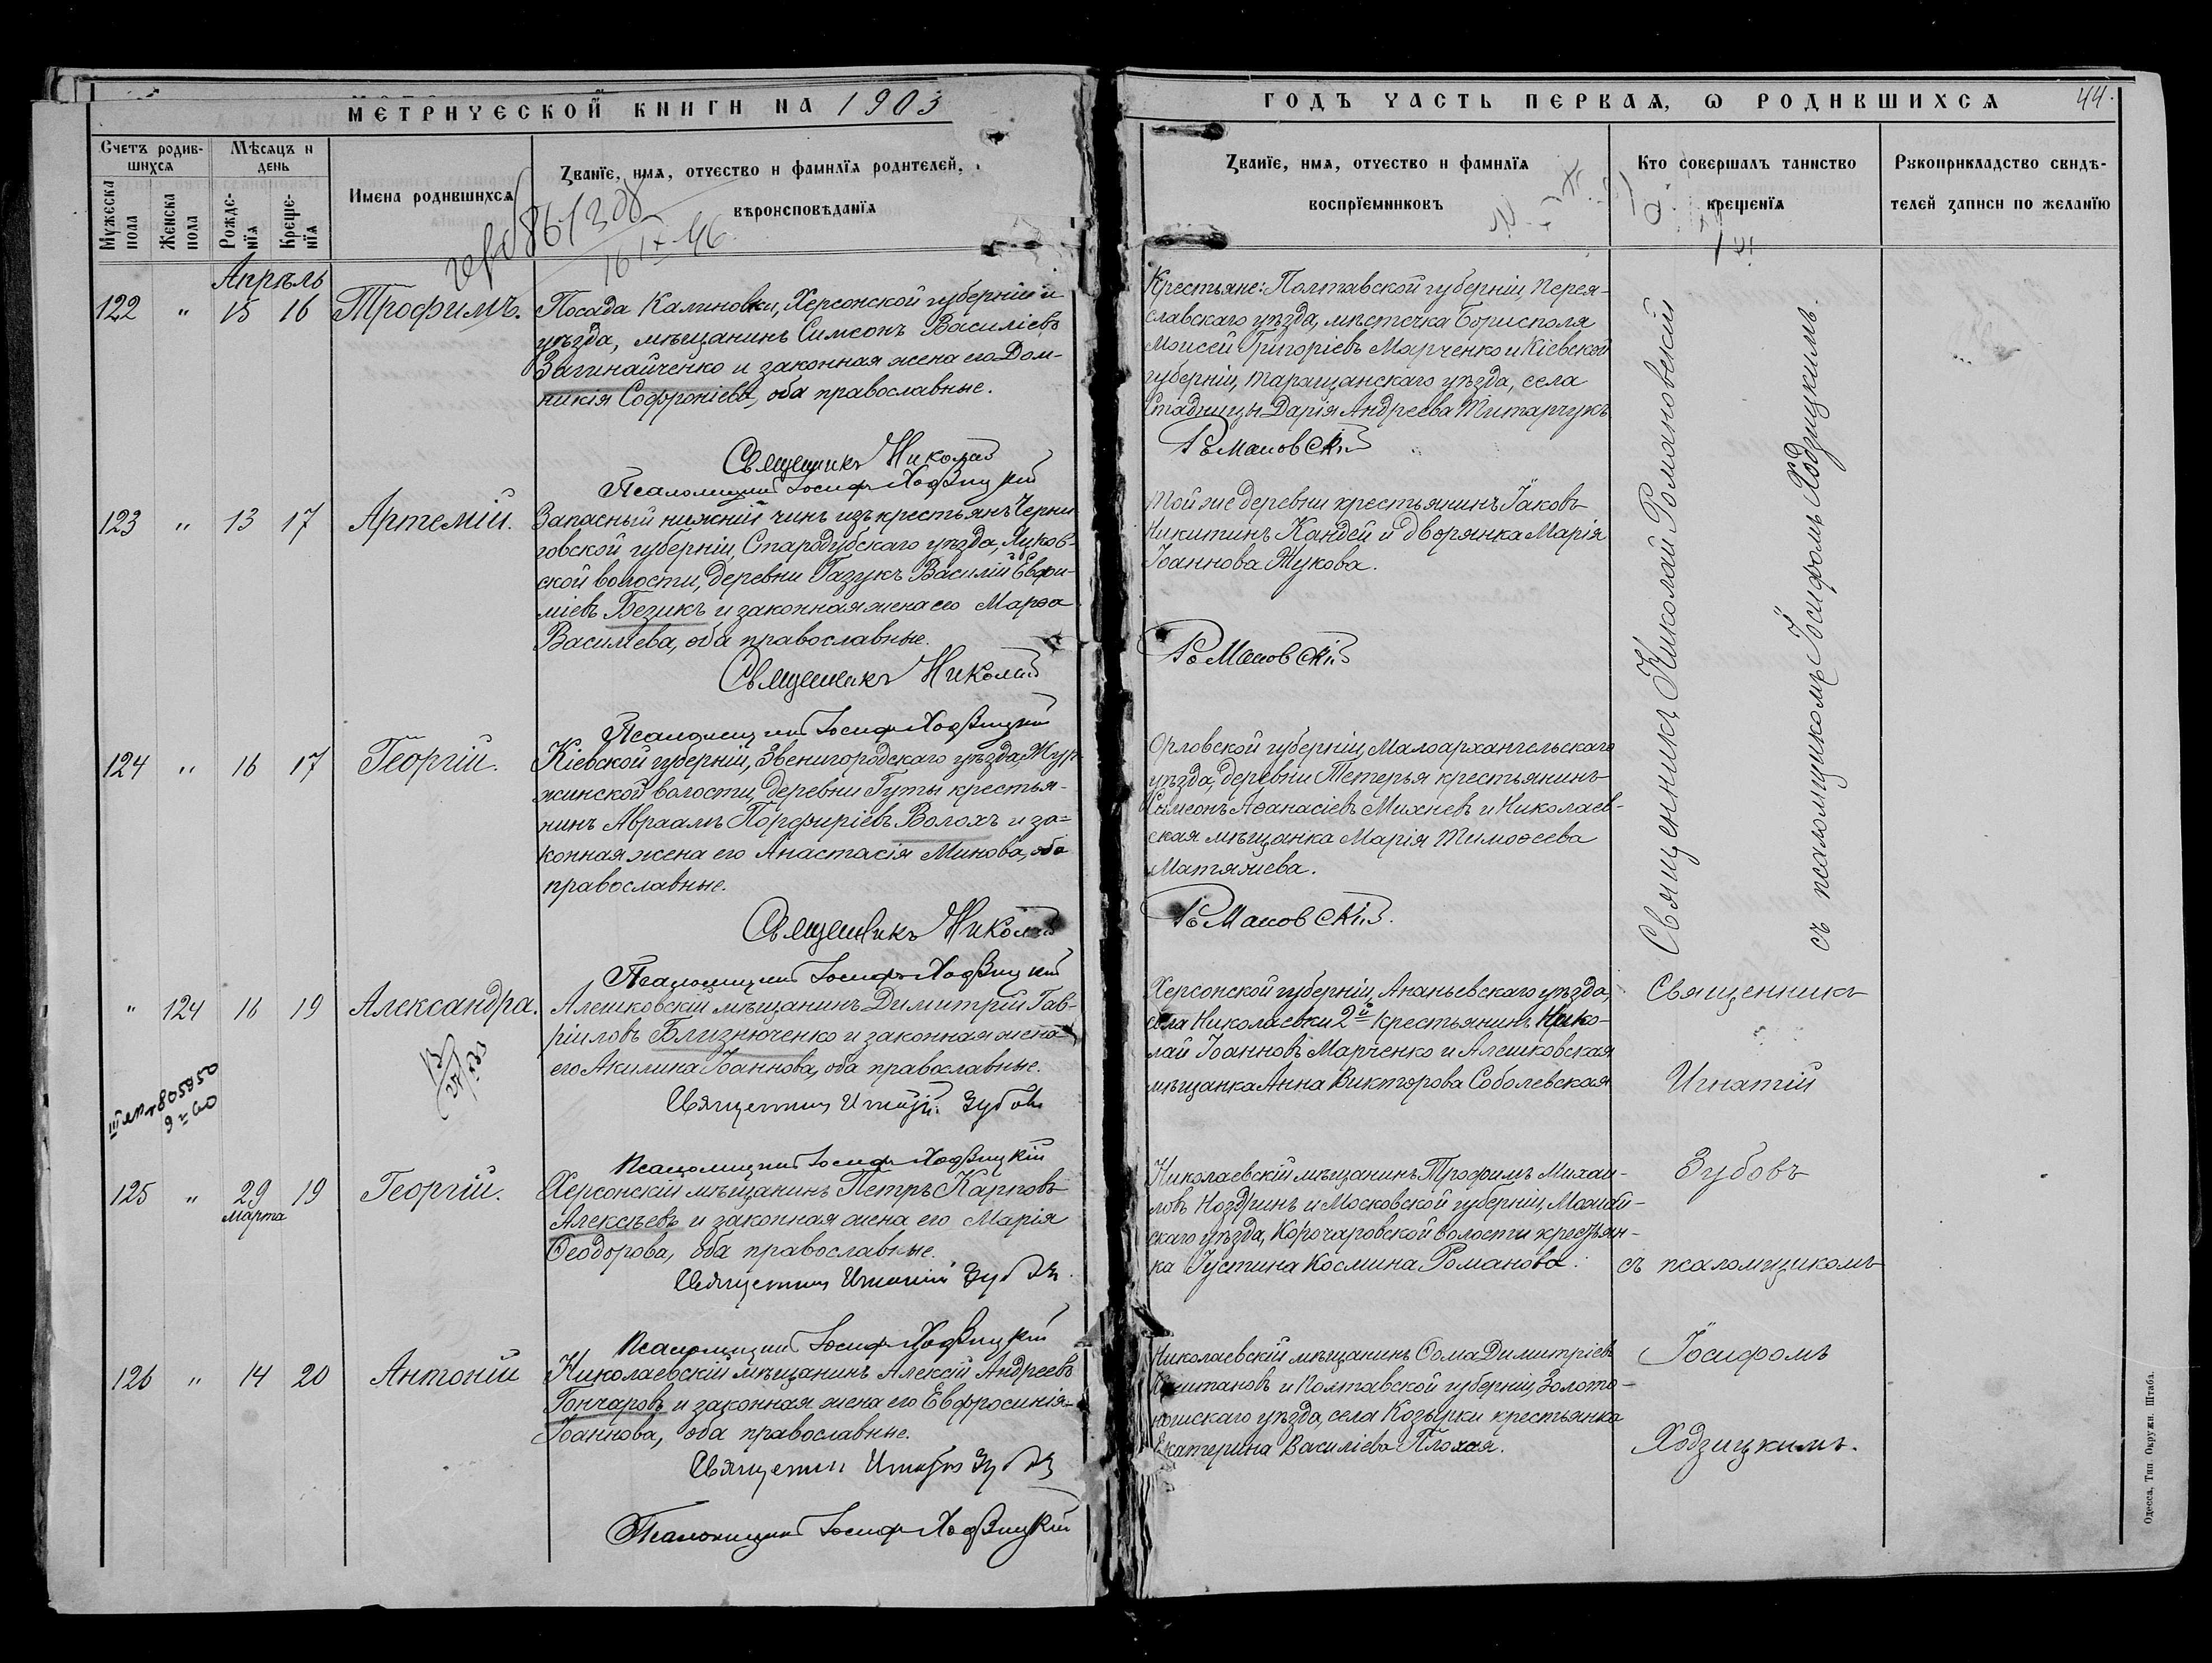 МЕТРИЧЕСКОЙ КНИГИ НА 1903
ГОДЪ ЧАСТЬ ПЕРВАЯ, Ѡ РОДИВШИХСЯ
44.
Счетъ родившихся
Мужеска пола
Женска пола
Мѣсяцъ и день
Рожденія
Крещенія
Имена родившихся
Званіе, имя, отчество и фамилія родителей,
вѣроисповѣданія
Званіе, имя, отчество и фамилія
воспріемниковъ
Кто совершалъ таинство
крещенія
Рукоприкладство свидѣ-
телей записи по желанію
Апрѣль
122 " 15 16 Трофимъ.
Посада Калиновки, Херсонской губерніи и
уѣзда, мѣщанинъ Симеонъ Василіевъ
Загинайченко и законная жена его Дом-
никія Софроніева, оба православные.
Крестьяне: Полтавской губерніи, Перея-
славскаго уѣзда, мѣстечка Борисполя
Моисей Григоріевъ Марченко и Кіевской
губерніи, Таращанскаго уѣзда, села
Стадницы Дарія Андреева Титарчукъ
Священникъ Николай Романовскій
Псаломщикъ Іосифъ Ходзицкій
123 " 13 17 Артемій.
Запасный нижній чинъ изъ крестьянъ Черни
говской губерніи, Стародубскаго уѣзда, Луков-
ской волости, деревни Газукъ Василій Евфи-
міевъ Безикъ и законная жена его Марѳа
Василіева, оба православные.
Той же деревни крестьянинъ Іаковъ
Никитинъ Кандей и дворянка Марія
Іоаннова Жукова.
Священникъ Николай Романовскій
Псаломщикъ Іосифъ Ходзицкій
124 " 16 17 Георгій.
Кіевской губерніи, Звенигородскаго уѣзда, Жур-
жинской волости, деревни Гуты крестья-
нинъ Авраамъ Порфиріевъ Волохъ и за=
конная жена его Анастасія Минова, оба
православные.
Орловской губерніи, Малоархангельскаго
уѣзда, деревни Тетерья крестьянинъ
Симеонъ Аѳанасіевъ Михневъ и Николаев-
ская мѣщанка Марія Тимоѳеева
Матячева.
Священникъ Николай Романовскій.
Псаломщикъ Іосифъ Ходзицкій
Священникъ Николай Романовскій
съ псаломщикомъ Іосифомъ Ходзицкимъ.
" 124 16 19 Александра.
Алешковскій мѣщанинъ Димитрій Гав-
ріиловъ Близнюченко и законная жена
его Акилина Іоаннова, оба православные.
Херсонской губерніи, Ананьевскаго уѣзда,
села Николаевки 2й крестьянинъ Нико-
лай Іоанновъ Марченко и Алешковская
мѣщанка Анна Викторова Соболевская
Священникъ Игнатій Зубовъ
Псаломщикъ Іосифъ Ходзицкій
125 " 29 марта 19 Георгій.
Херсонскій мѣщанинъ Петръ Карповъ
Алексѣевъ и законная жена его Марія
Ѳеодорова, оба православные.
Николаевскій мѣщанинъ Трофимъ Михаи-
ловъ Ноздринъ и Московской губерніи, Можай-
скаго уѣзда, Корочаровской волости крестьян-
ка Іустина Космина Романова.
Священникъ Игнатій Зубовъ
Псаломщикъ Іосифъ Ходзицкій
126 " 14 20 Антоній
Николаевскій мѣщанинъ Алексій Андреевъ
Гончаровъ и законная жена его Евфросинія
Іоаннова, оба православные.
Николаевскій мѣщанинъ Ѳома Димитріевъ
и Полтавской губерніи, Золото-
ношскаго уѣзда, села Козырки крестьянка
Екатерина Василіева Плохая.
Священникъ Игнатій Зубовъ
Псаломщикъ Іосифъ Ходзицкій
Священникъ
Игнатій
Зубовъ
съ псаломщикомъ
Іосифомъ
Ходзицкимъ.
Одесса, Тип. Окружн. Штаба.